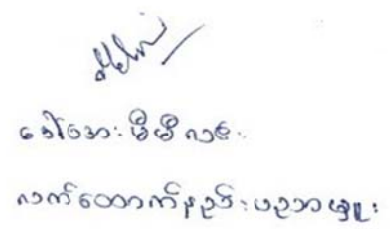 ဒေါ်အေးမီမီလမ်း
လက်ထောက်နည်းပညာမှူး